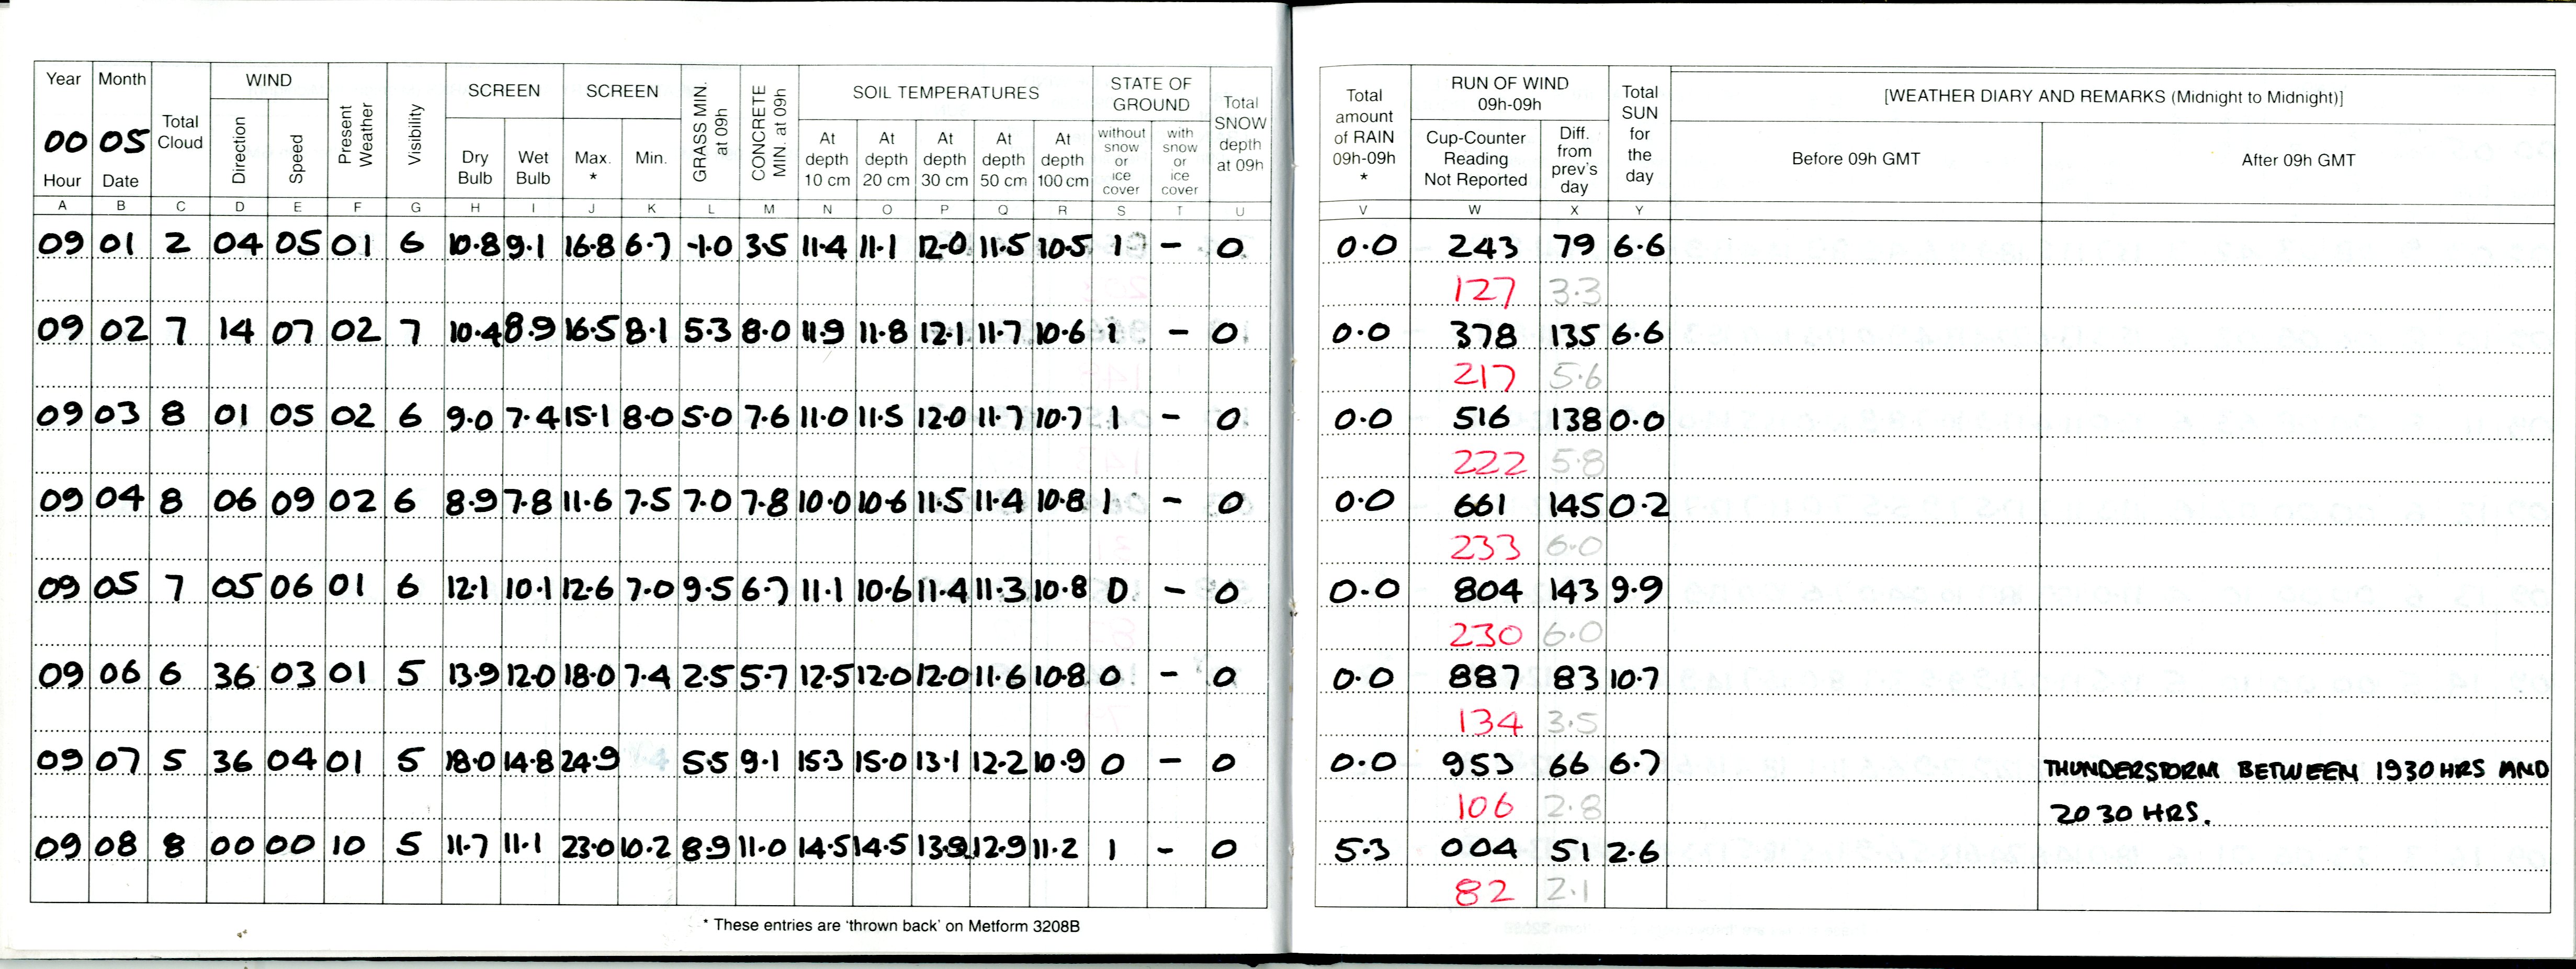 Year Month Total Cloud WIND Present Weather Visibility SCREEN SCREEN GRASS MIN. at 09h CONCRETE MIN. at 09h SOIL TEMPERATURES STATE OF GROUND Total SNOW depth at 09h Total amount of RAIN 09h-09h * RUN OF WIND 09h-09h Total SUN for the day [WEATHER DIARY AND REMARKS (Midnight to Midnight)]
00 05 Direction Speed Dry Bulb Wet Bulb Max. * Min. At depth 10 cm At depth 20 cm At depth 30 cm At depth 50 cm At depth 100 cm without snow or ice cover with snow or ice cover Cup-Counter Reading Not Reported Diff. from prev's day Before 09h GMT After 09h GMT
Hour Date
A B C D E F G H I J K L M N O P Q R S T U V W X Y
09 01 2 04 05 01 6 10.8 9.1 16.8 6.7 -1.0 3.5 11.4 11.1 12.0 11.5 10.5 1 - 0 0.0 243 79 6.6
127 3.3
09 02 7 14 07 02 7 10.4 8.9 16.5 8.1 5.3 8.0 11.9 11.8 12.1 11.7 10.6 1 - 0 0.0 378 135 6.6
217 5.6
09 03 8 01 05 02 6 9.0 7.4 15.1 8.0 5.0 7.6 11.0 11.5 12.0 11.7 10.7 1 - 0 0.0 516 138 0.0
222 5.8
09 04 8 06 09 02 6 8.9 7.8 11.6 7.5 7.0 7.8 10.0 10.6 11.5 11.4 10.8 1 - 0 0.0 661 145 0.2
233 6.0
09 05 7 05 06 01 6 12.1 10.1 12.6 7.0 9.5 6.7 11.1 10.6 11.4 11.3 10.8 0 - 0 0.0 804 143 9.9
230 6.0
09 06 6 36 03 01 5 13.9 12.0 18.0 7.4 2.5 5.7 12.5 12.0 12.0 11.6 10.8 0 - 0 0.0 887 83 10.7
134 3.5
09 07 5 36 04 01 5 18.0 14.8 24.9 5.5 9.1 15.3 15.0 13.1 12.2 10.9 0 - 0 0.0 953 66 6.7 THUNDERSTORM BETWEEN 1930 HRS AND
106 2.8 2030 HRS.
09 08 8 00 00 10 5 11.7 11.1 23.0 10.2 8.9 11.0 14.5 14.5 13.9 12.9 11.2 1 - 0 5.3 004 51 2.6
82 2.1
* These entries are 'thrown back' on Metform 3208B